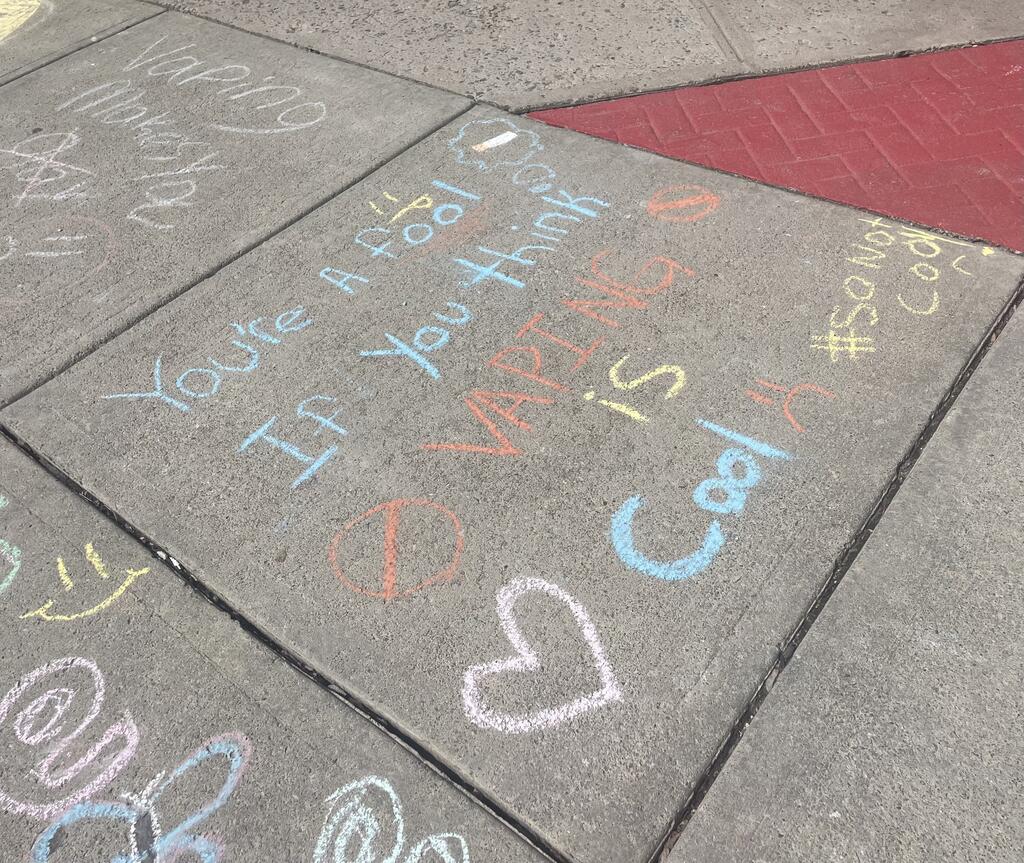 Vaping
Makes
You're A fool
If You think
VAPING
is
Cool
#So Not
cool